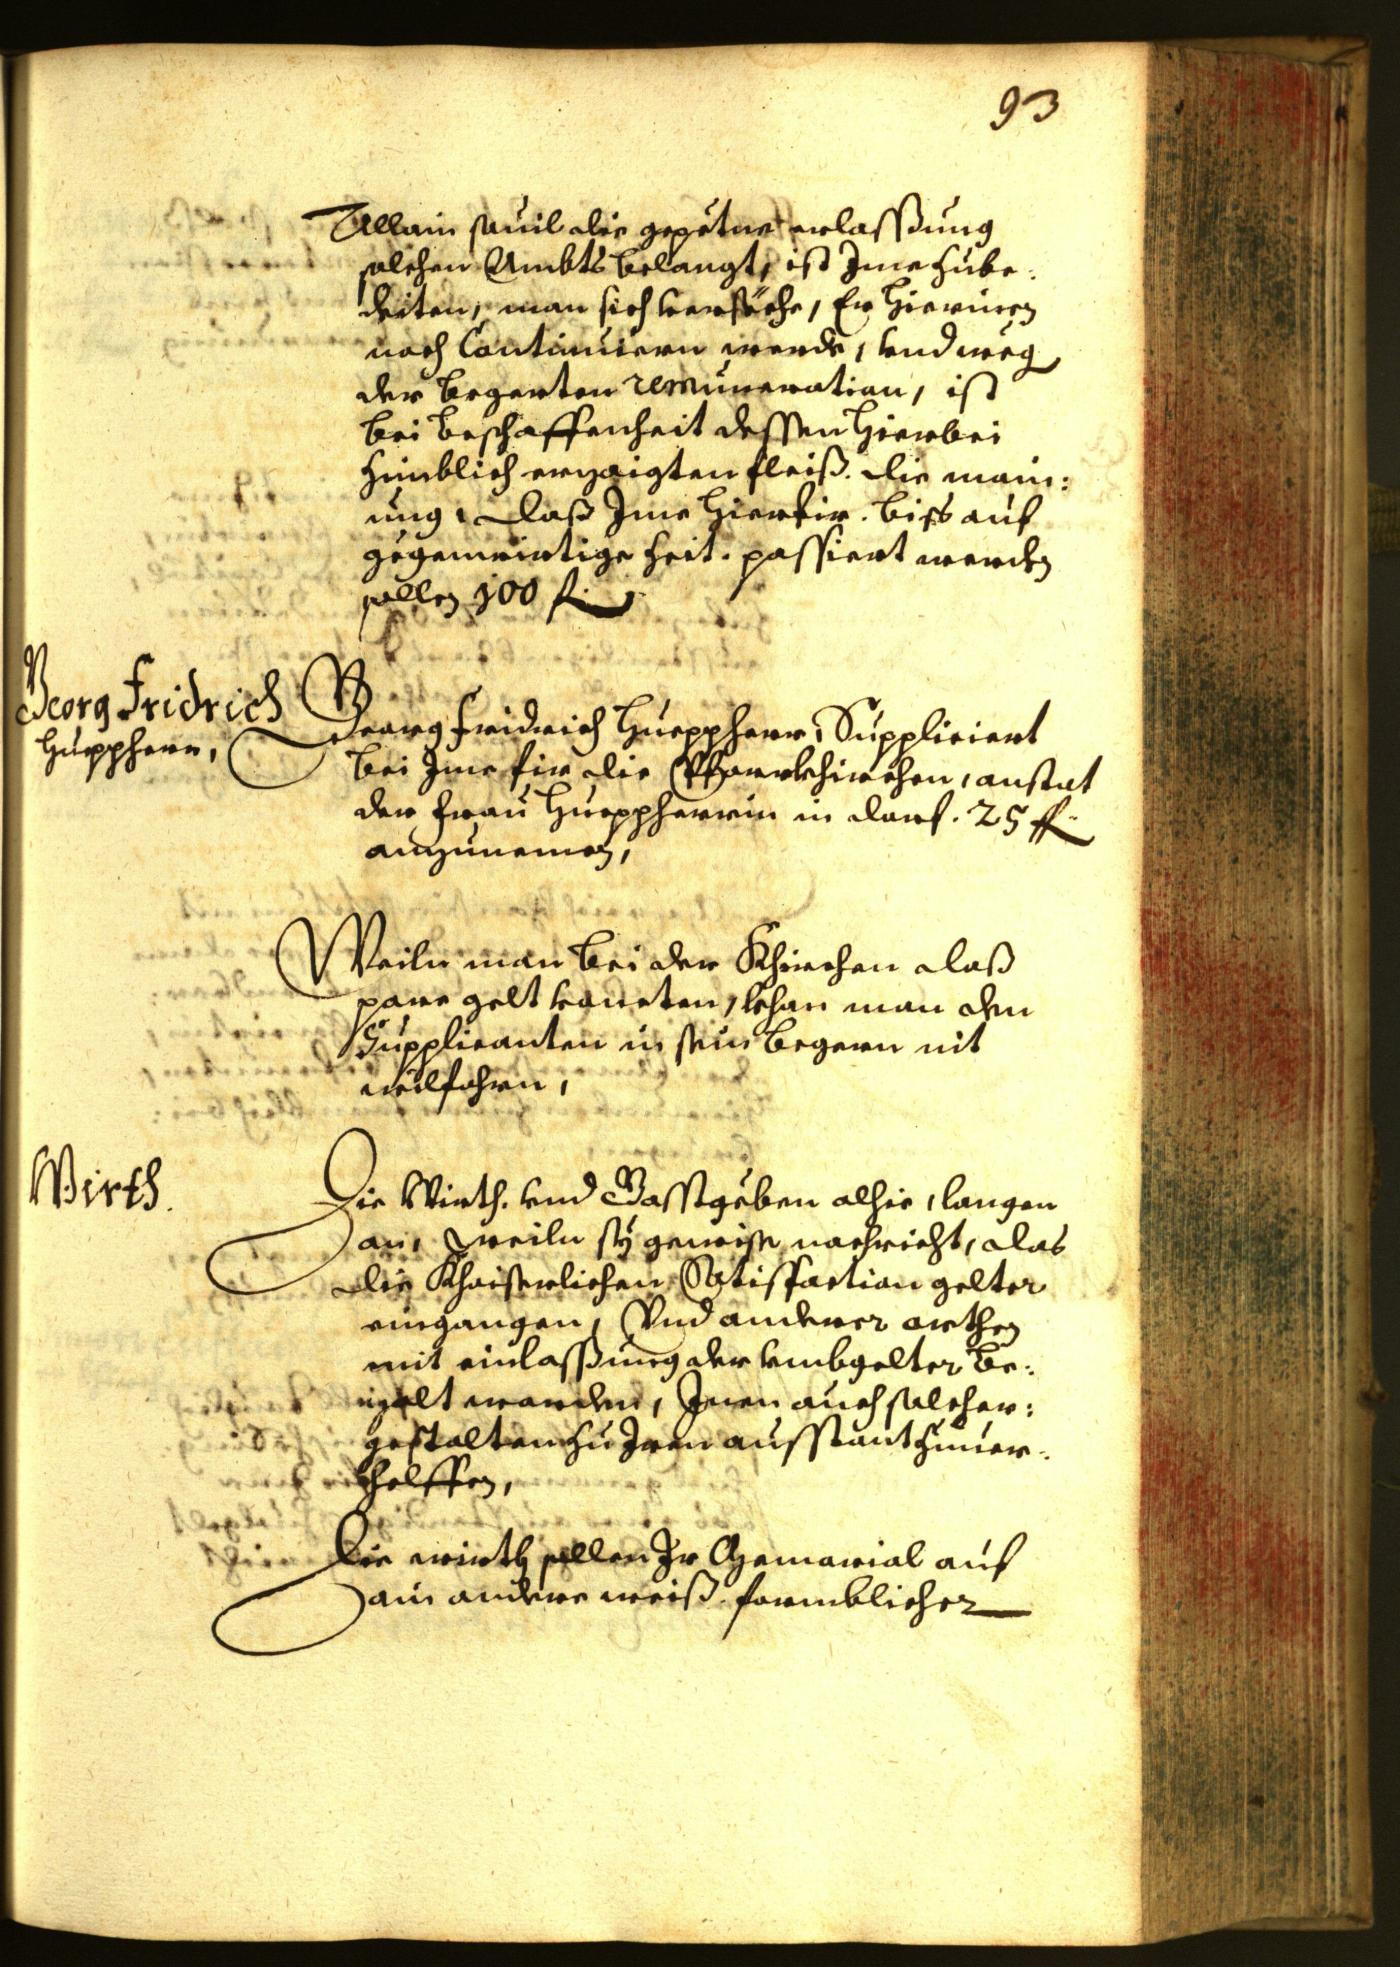 93
Allain sovil die gepetne erlassung
solchen Ambts belangt, ist Ime zube:
deiten, man sich versehe, Er hierinen
noch Continuiern werde, vnd weg
der begerten remuneration, ist
bei beschaffenheit dessen hierbei
erzaigten fleiß. die main:
ung, daß Ime hierfir. biss auf
gegenwirtige Zeit. passiert werden
sollen 100 f.
Georg Fridrich
Hueppherr,
Georg Fridrich Hueppherr, Suppliciert
bei Ime fir die Pfarrkhirchen, anstat
der Frau Huepphervin in 25 f
anzunemen,
Weiln man bei der Khirchen daß
pare gelt vonneten, khan man den
Supplicanten in sein begern nit
wilfahrn,
Wirth.
Die Wirth. vnd Gasstgeben alhie, langen
an, weiln sy gewise nachricht, das
die Khaiserlichen Satisfaction gelter
eingangen, Vnd anderer orthen
mit einlassung der vmbgelter be:
zalt worden, Inen auch solcher:
gestalten zu Iren ausstant zuuer:
helffen,
Die wirth sollen Ir Memorial auf
ain andere weiß. formblicher